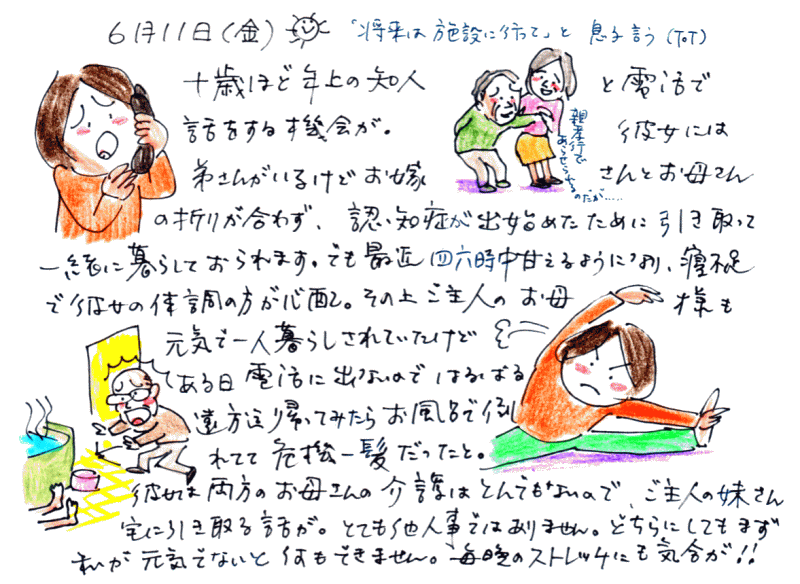 6月11日(金) 「将来は施設に行って」と 息子言う (ToT)
十歳ほど年上の知人 と電話で
話をする機会が。 彼女には
親孝行で
あらせられる
のだが……
弟さんがいるけど お嫁 さんとお母さん
の折りが合わず、認知症が出始めたために引き取って
一緒に暮らしておられます。でも最近 四六時中甘えるようになり、寝不足
で彼女の体調の方が心配。その上ご主人のお母 様も
元気で一人暮らしされていたけど
ある日 電話に出ないので はるばる
遠方迄帰ってみたらお風呂で倒
れてて 危機一髪だったと。
彼女は両方のお母さんの介護はとんでもないので、ご主人の妹さん
宅に引き取る話が。とても他人事ではありません。どちらにしてもまず
私が元気でないと何もできません。毎晩のストレッチにも気合が!!